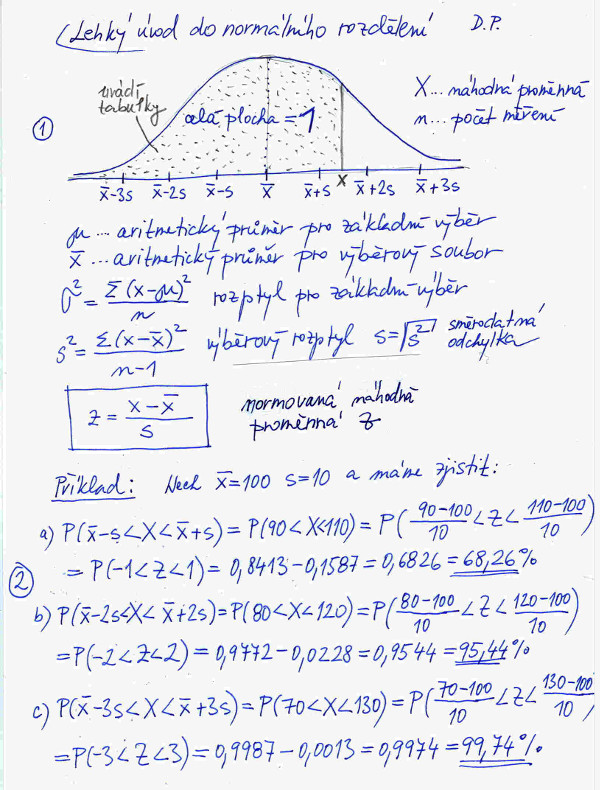 Lehký úvod do normálního rozdělení D.P.
uvádí tabulky
celá plocha = 1
X... náhodná proměnná
n... počet měření
1
x̄-3s x̄-2s x̄-s x̄ x̄+s x x̄+2s x̄+3s
μ ... aritmetický průměr pro základní výběr
x̄ ... aritmetický průměr pro výběrový soubor
σ² = Σ(x-μ)²/n rozptyl pro základní výběr
s² = Σ(x-x̄)²/n-1 výběrový rozptyl s=√s² směrodatná odchylka
z = x-x̄/s normovaná náhodná proměnná z
Příklad: Nech x̄=100 s=10 a máme zjistit:
2
a) P(x̄-s<X<x̄+s) = P(90<X<110) = P(90-100/10 < Z < 110-100/10)
= P(-1<Z<1) = 0,8413-0,1587 = 0,6826 = 68,26%
b) P(x̄-2s<X<x̄+2s) = P(80<X<120) = P(80-100/10 < Z < 120-100/10)
= P(-2<Z<2) = 0,9772-0,0228 = 0,9544 = 95,44%
c) P(x̄-3s<X<x̄+3s) = P(70<X<130) = P(70-100/10 < Z < 130-100/10)
= P(-3<Z<3) = 0,9987-0,0013 = 0,9974 = 99,74%